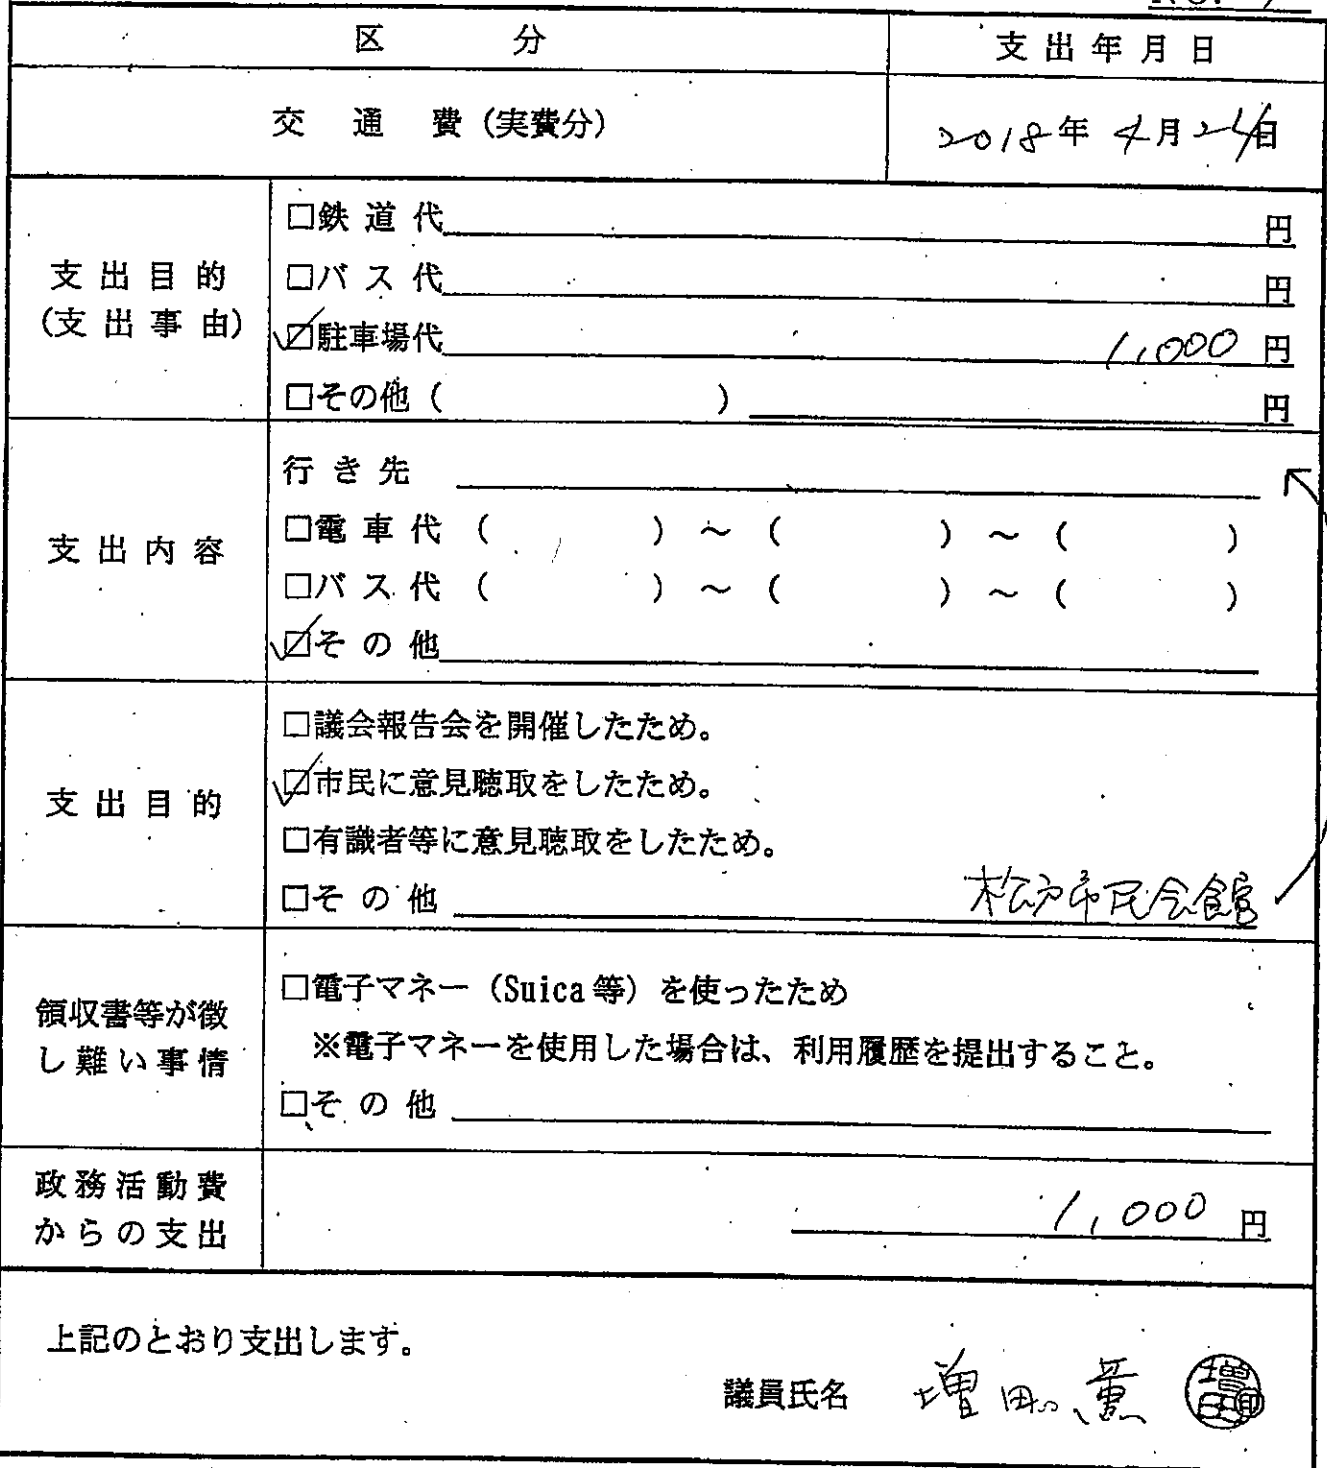 区 分 支出年月日
交 通 費 (実費分) 2018年 4月 日
支出目的
(支出事由)
□鉄 道 代 円
□バ ス 代 円
☑駐車場代 1,000 円
□その他 ( ) 円
支出内容
行 き 先
□電 車 代 ( ) ~ ( ) ~ ( )
□バ ス 代 ( ) ~ ( ) ~ ( )
☑そ の 他
支出目的
□議会報告会を開催したため。
☑市民に意見聴取をしたため。
□有識者等に意見聴取をしたため。
□そ の 他 松戸市民会館
領収書等が徴
し難い事情
□電子マネー (Suica 等) を使ったため
※電子マネーを使用した場合は、利用履歴を提出すること。
□そ の 他
政務活動費
からの支出
1,000 円
上記のとおり支出します。
議員氏名 増田 薫 増田 印